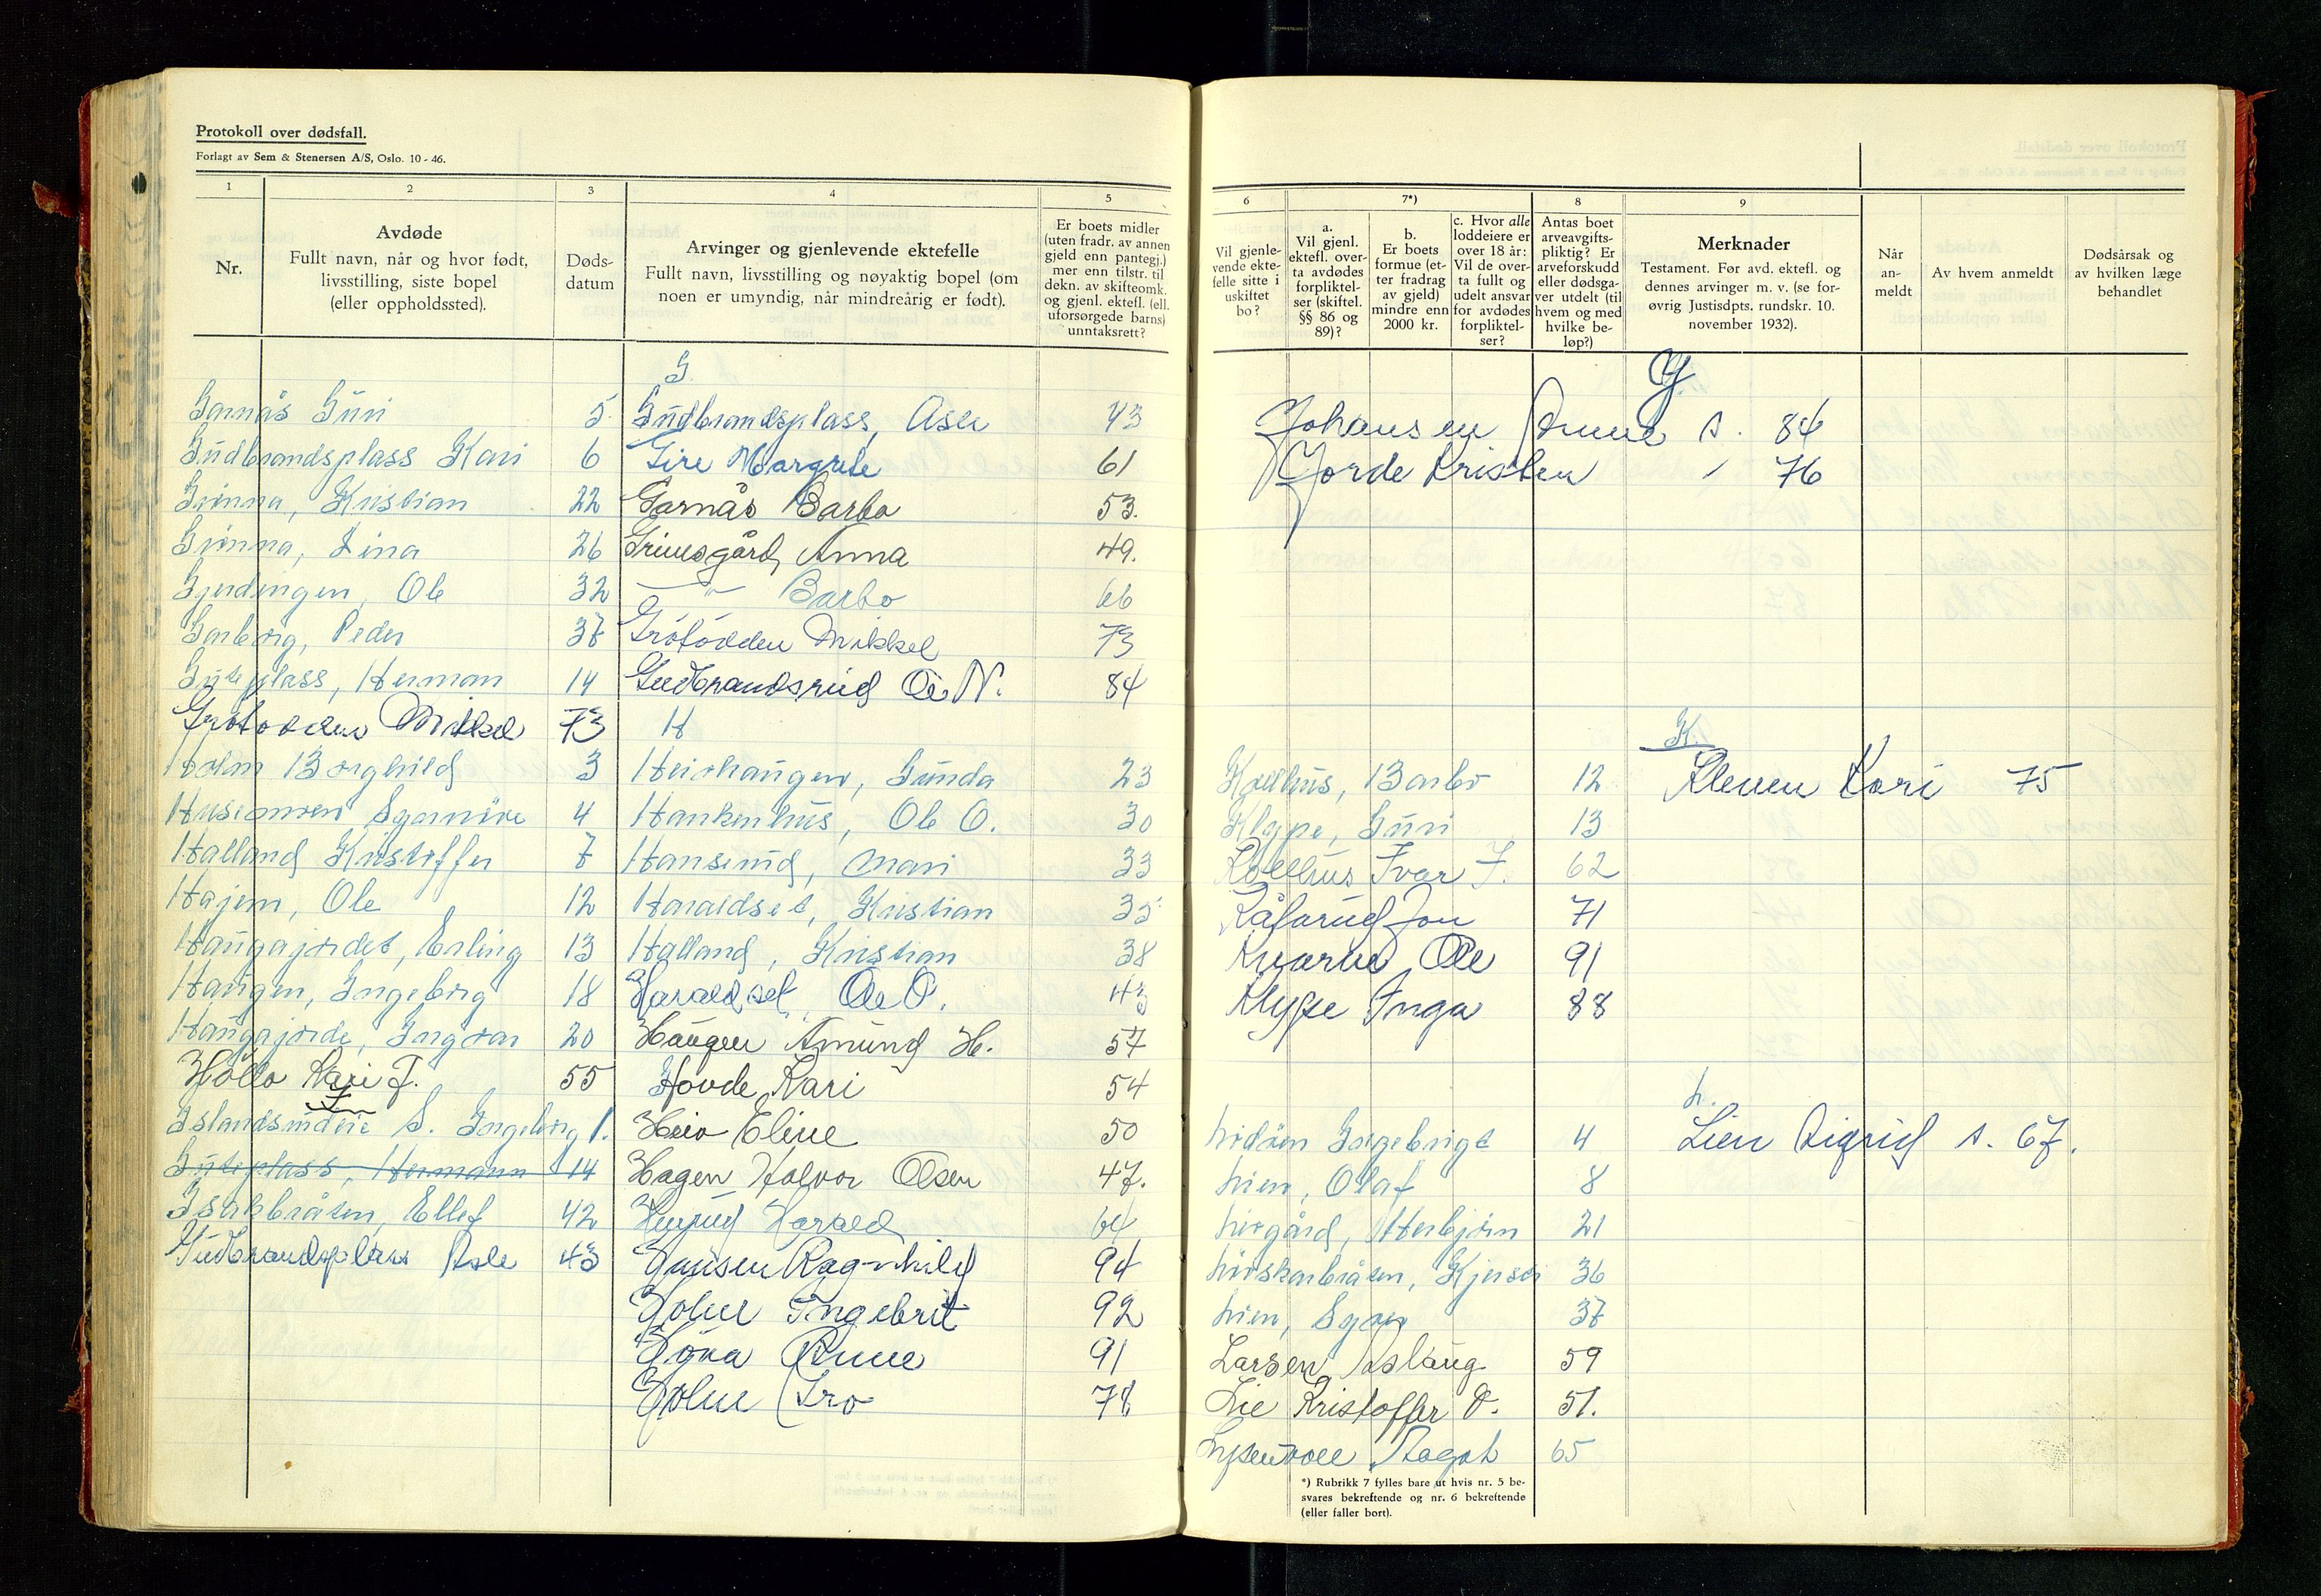 Protokoll over dødsfall.
Forlagt av Sem & Stenersen A/S, Oslo. 10 - 46.
1
2
3
4
5
Nr.
Avdøde
Fullt navn, når og hvor født,
livsstilling, siste bopel
(eller oppholdssted).
Døds-
datum
Arvinger og gjenlevende ektefelle
Fullt navn, livsstilling og nøyaktig bopel (om
noen er umyndig, når mindreårig er født).
Er boets midler
(uten fradr. av annen
gjeld enn pantegj.)
mer enn tilstr. til
dekn. av skifteomk.
og gjenl. ektefl. (ell.
uforsørgede barns)
unntaksrett?
G.
Garnås Guri 5
Gudbrandsplass Kari 6
Grönna, Kristian 22
Grönna, Lina 26
Gjerdingen, Ole 32
Garberg, Peder 37
Guteplass, Herman 14
Grötodden Mikkel 73
Holm Borghild 3
Husemoen Synnöve 4
Halland Kristoffer 7
Hajem, Ole 12
Haugajordet, Erling 13
Haugen, Ingeborg 18
Haugajorde, Ingvar 20
Hölto Kari J. 55
I
Islandsmoeie S. Ingeborg 1.
Guteplass, Hermann 14
Isakbråten, Ellef 42
Gudbrandsplass Asle 43
Gudbrandsplass, Asle 43
Gire Margrete 61
Garnås Barbo 53.
Grimsgård, Anna 49.
— " — Barbo 66
Grötodden Mikkel 73
Gudbrandsrud Ole N. 84
H
Heiehaugen, Gunda 23
Haukenhus, Ole O. 30
Hanserud, Mari 33
Haraldset, Kristian 35
Halland, Kristian 38
Haraldset, Ole O. 43
Haugen Amund H. 57
Hovde, Kari 54
Heio Eline 50
Hagen Halvor Olsen 47.
Harald 64
Hansen Ragnhild 94
Holm Ingebrit 92
Anne 91
Holm Iro 78
6
7*)
8
9
Vil gjenle-
vende ekte-
felle sitte i
uskiftet
bo?
a.
Vil gjenl.
ektefl. over-
ta avdødes
forpliktel-
ser (skiftel.
§§ 86 og
89)?
b.
Er boets
formue (et-
ter fradrag
av gjeld)
mindre enn
2000 kr.
c. Hvor alle
loddeiere er
over 18 år:
Vil de over-
ta fullt og
udelt ansvar
for avdødes
forpliktel-
ser?
Antas boet
arveavgifts-
pliktig? Er
arveforskudd
eller dødsga-
ver utdelt (til
hvem og med
hvilke be-
løp?)
Merknader
Testament. Før avd. ektefl. og
dennes arvinger m. v. (se for-
øvrig Justisdpts. rundskr. 10.
november 1932).
Når
an-
meldt
Av hvem anmeldt
Dødsårsak og
av hvilken læge
behandlet
G
Johansen Anne s. 84
Gjorde Kristen 76
K.
Kollhus, Barbo 12
Klype, Guri 13
Kollhus Ivar J. 62
Råsarud Jon 71
Kvarne Ole 91
Klype Inga 88
Kleven Kari 75
L.
Lidåen Ingebrigt 4
Lien, Olaf 8
Liegård, Herbjörn 21
Lövskarbråten, Kjersti 36
Lien, Syver 37
Larsen Aslaug 59
Lie Kristoffer O. 51.
65
Lien Sigrid s. 67.
*) Rubrikk 7 fylles bare ut hvis nr. 5 be-
svares bekreftende og nr. 6 bekreftende
(eller faller bort).